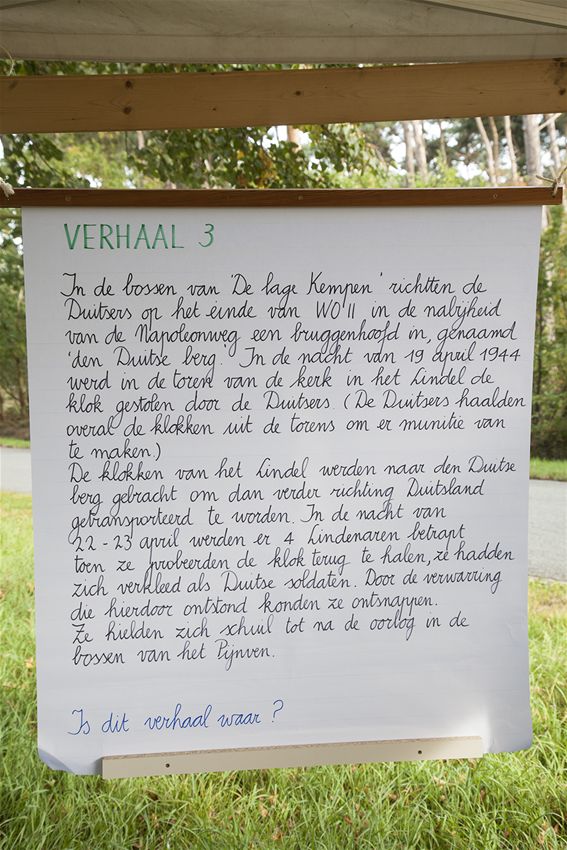 VERHAAL 3
In de bossen van 'De lage Kempen' richtten de
Duitsers op het einde van WO II in de nabijheid
van de Napoleonweg een bruggenhoofd in, genaamd
'den Duitse berg.' In de nacht van 19 april 1944
werd in de toren van de kerk in het Lindel de
klok gestolen door de Duitsers. (De Duitsers haalden
overal de klokken uit de torens om er munitie van
te maken.)
De klokken van het Lindel werden naar den Duitse
berg gebracht om dan verder richting Duitsland
getransporteerd te worden. In de nacht van
22-23 april werden er 4 Lindenaren betrapt
toen ze probeerden de klok terug te halen, ze hadden
zich verkleed als Duitse soldaten. Door de verwarring
die hierdoor ontstond konden ze ontsnappen.
Ze hielden zich schuil tot na de oorlog in de
bossen van het Pijnven.
Is dit verhaal waar?